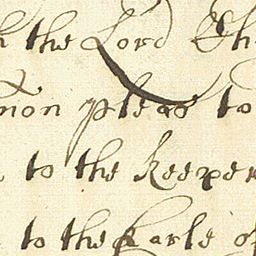 the Lord
mon pleas to
to the Keeper
to the Earle of